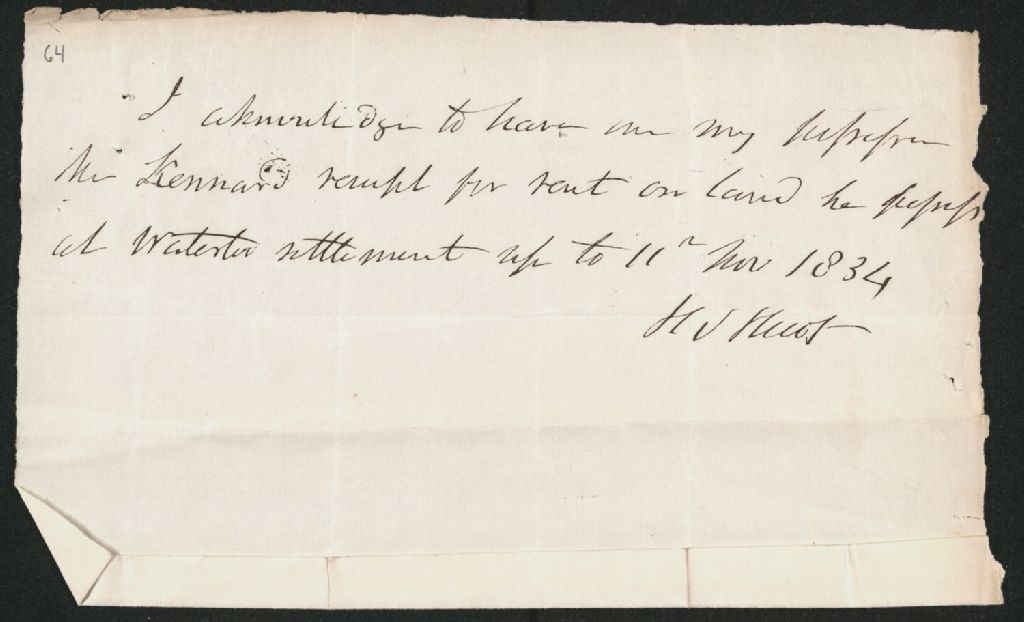 64
I aknowlidge to have in my possession
Mr Kennard receipt for rent on land he possess
at Waterloo settlement up to 11th Nov 1834
H J